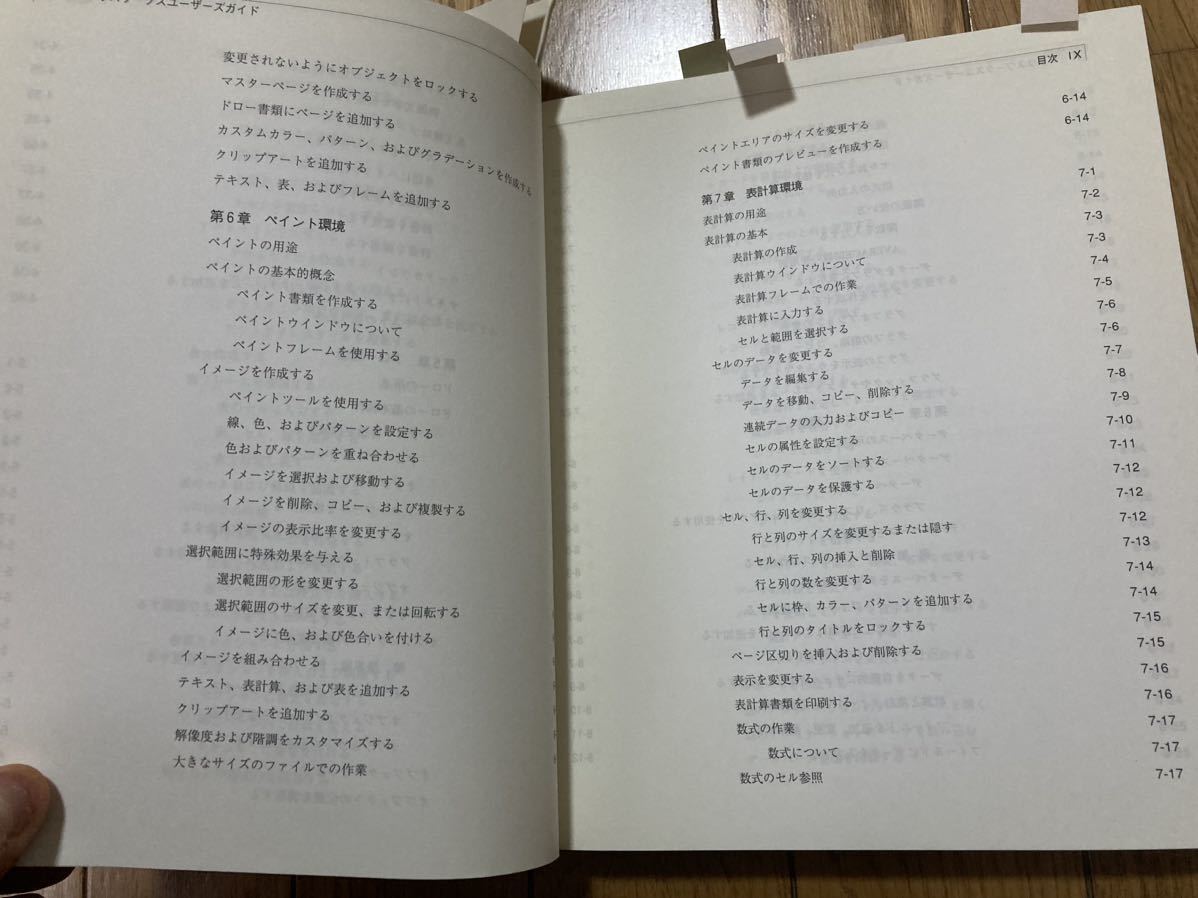 ユーザーズガイド
変更されないようにオブジェクトをロックする
マスターページを作成する
ドロー書類にページを追加する
カスタムカラー、パターン、およびグラデーションを作成する
クリップアートを追加する
テキスト、表、およびフレームを追加する
第6章 ペイント環境
ペイントの用途
ペイントの基本的概念
ペイント書類を作成する
ペイントウインドウについて
ペイントフレームを使用する
イメージを作成する
ペイントツールを使用する
線、色、およびパターンを設定する
色およびパターンを重ね合わせる
イメージを選択および移動する
イメージを削除、コピー、および複製する
イメージの表示比率を変更する
選択範囲に特殊効果を与える
選択範囲の形を変更する
選択範囲のサイズを変更、または回転する
イメージに色、および色合いを付ける
イメージを組み合わせる
テキスト、表計算、および表を追加する
クリップアートを追加する
解像度および階調をカスタマイズする
大きなサイズのファイルでの作業
目次 IX
ペイントエリアのサイズを変更する 6-14
ペイント書類のプレビューを作成する 6-14
第7章 表計算環境 7-1
表計算の用途 7-2
表計算の基本 7-3
表計算の作成 7-3
表計算ウインドウについて 7-4
表計算フレームでの作業 7-5
表計算に入力する 7-6
セルと範囲を選択する 7-6
セルのデータを変更する 7-7
データを編集する 7-8
データを移動、コピー、削除する 7-9
連続データの入力およびコピー 7-10
セルの属性を設定する 7-11
セルのデータをソートする 7-12
セルのデータを保護する 7-12
セル、行、列を変更する 7-12
行と列のサイズを変更するまたは隠す 7-13
セル、行、列の挿入と削除 7-14
行と列の数を変更する 7-14
セルに枠、カラー、パターンを追加する 7-15
行と列のタイトルをロックする 7-15
ページ区切りを挿入および削除する 7-16
表示を変更する 7-16
表計算書類を印刷する 7-17
数式の作業 7-17
数式について 7-17
数式のセル参照